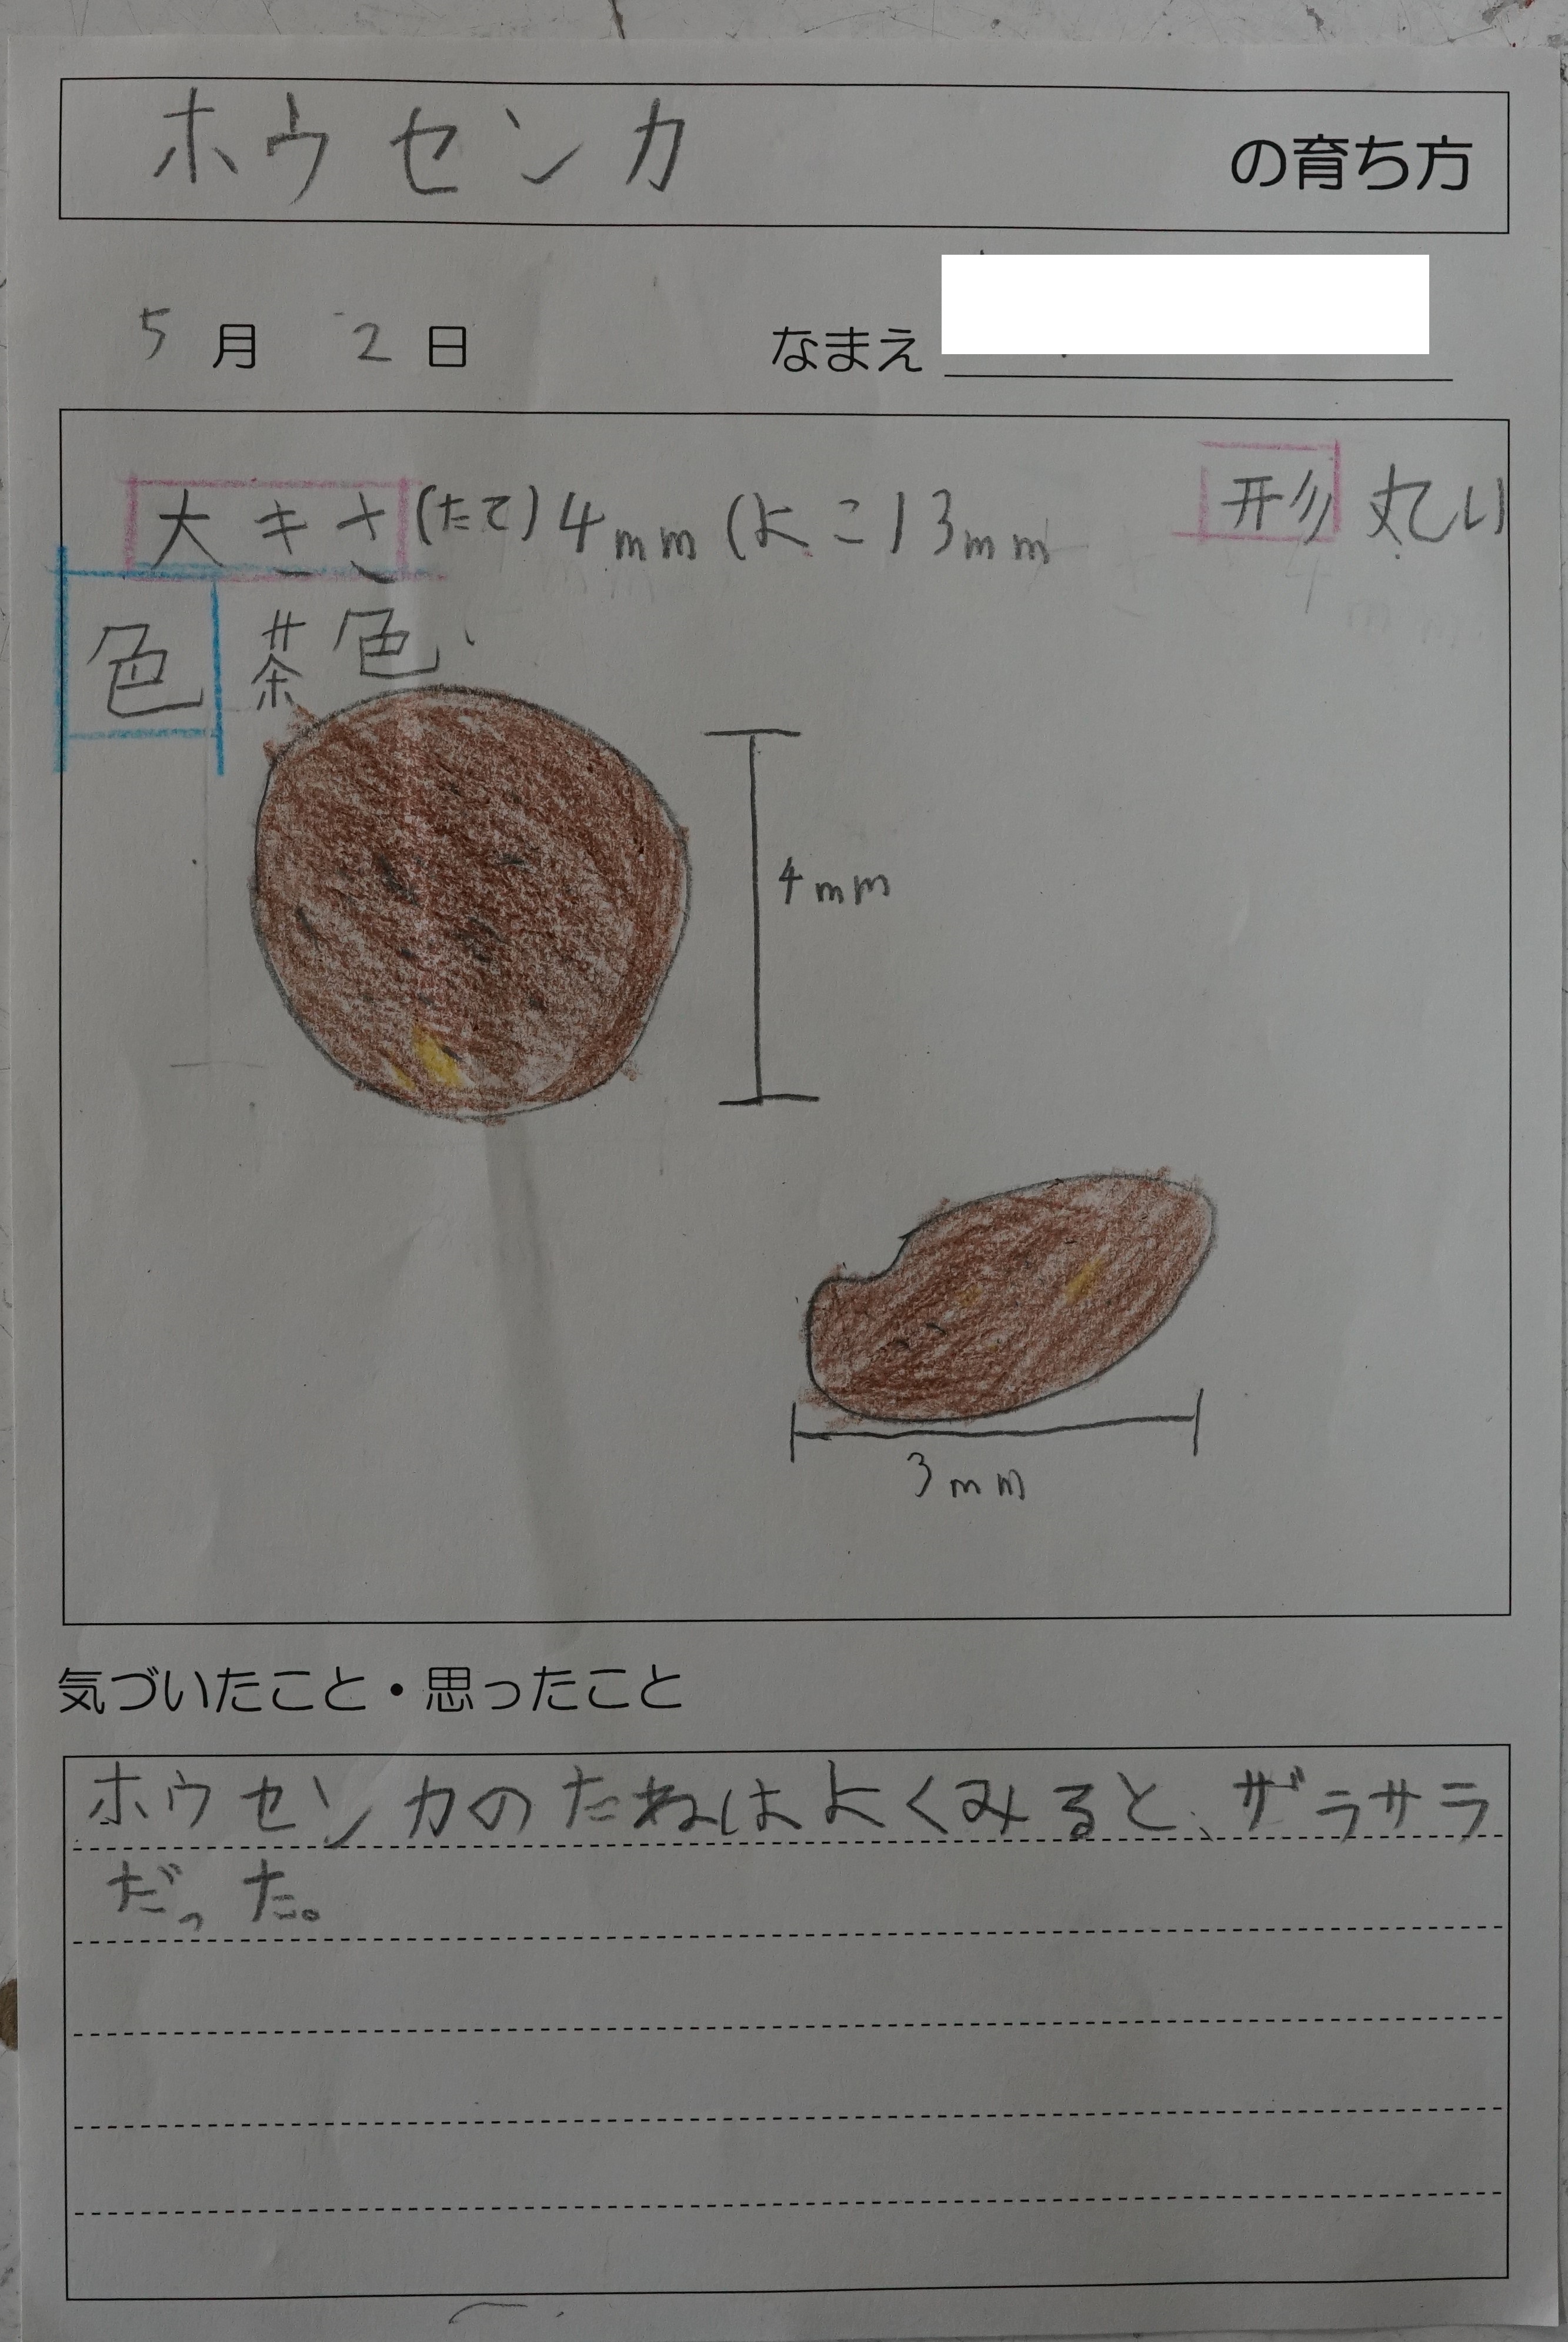 ホウセンカ の育ち方
5月 2日 なまえ
大きさ (たて)4mm (よこ)3mm 形 丸い
色 茶色
4mm
3mm
気づいたこと・思ったこと
ホウセンカのたねはよくみると、ザラサラ
だった。